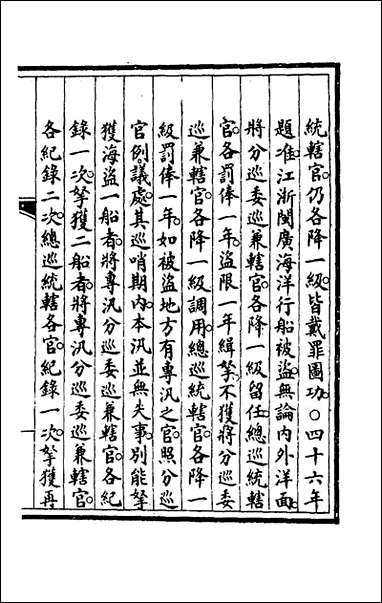 統轄官仍各降一級皆戴罪圖功○四十六年
題准江浙閩廣海洋行船被盜無論内外洋面
將分巡委巡兼轄官各降一級留任總巡統轄
官各罰俸一年盜限一年緝拏不獲將分巡委
巡兼轄官各降一級調用總巡統轄官各降一
級罰俸一年如被盜地方有專汛之官照分巡
官例議處其巡哨期内本汛並無失事别能拏
獲海盜一船者將專汛分巡委巡兼轄官各紀
錄一次拏獲二船者將專汛分巡委巡兼轄官
各紀錄二次總巡統轄各官紀錄一次拏獲再